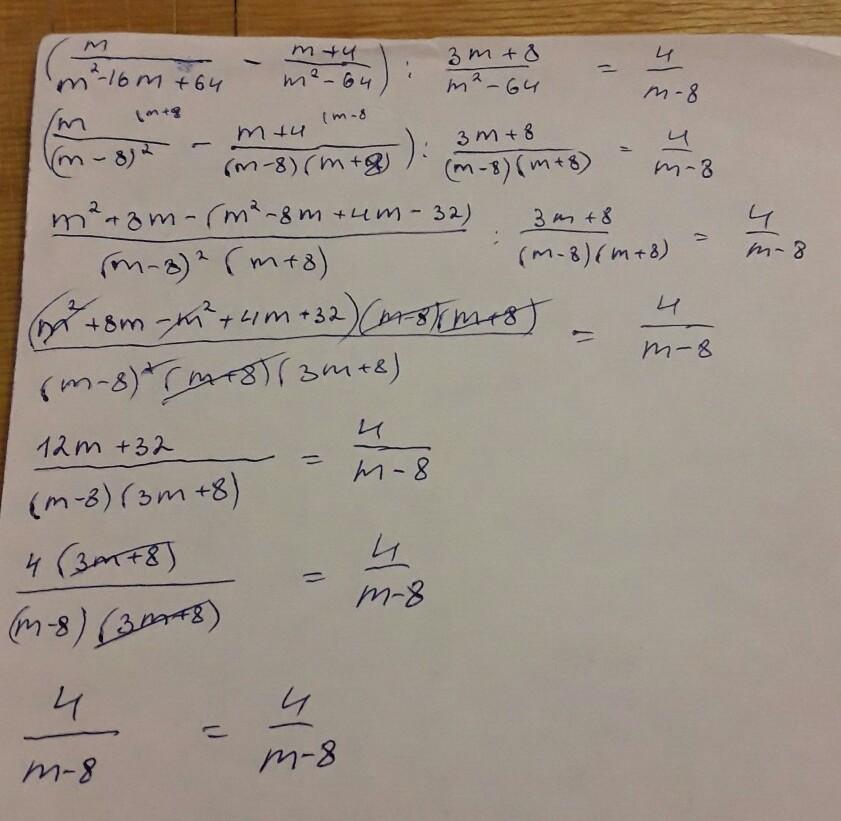 (m/(m²-16m+64) - (m+4)/(m²-64)) : (3m+8)/(m²-64) = 4/(m-8)
(m/(m-8)² (m+8 - (m+4)/((m-8)(m+8)) (m-8) : (3m+8)/((m-8)(m+8)) = 4/(m-8)
(m²+8m-(m²-8m+4m-32))/((m-8)²(m+8)) : (3m+8)/((m-8)(m+8)) = 4/(m-8)
((m²+8m-m²+4m+32)(m-8)(m+8))/((m-8)²(m+8)(3m+8)) = 4/(m-8)
(12m+32)/((m-8)(3m+8)) = 4/(m-8)
(4(3m+8))/((m-8)(3m+8)) = 4/(m-8)
4/(m-8) = 4/(m-8)